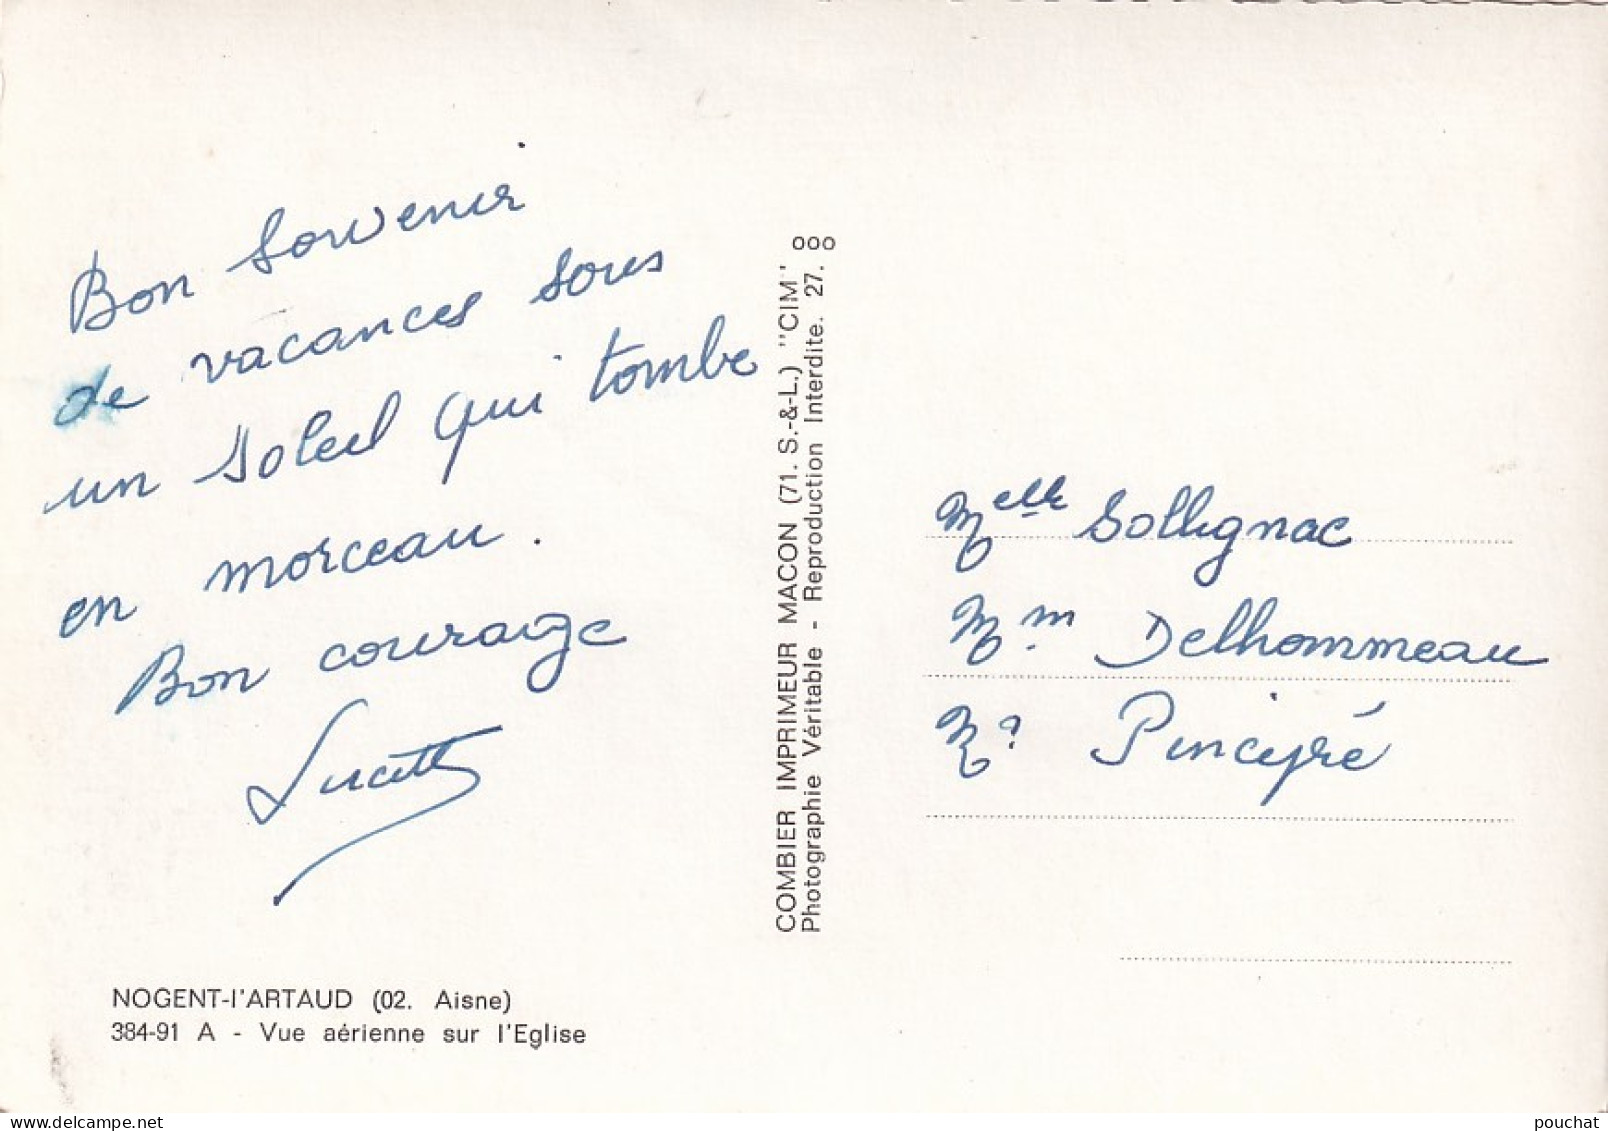 Bon souvenir
de vacances sous
un soleil qui tombe
en morceau.
Bon courage
Lucette
NOGENT-l'ARTAUD (02. Aisne)
384-91 A - Vue aérienne sur l'Eglise
COMBIER IMPRIMEUR MACON (71. S.-&-L.) "CIM"
Photographie Véritable - Reproduction Interdite. 27. ooo
Melle Sollignac
Mm Delhommeau
Pinceyré
delcampe.net
pouchat